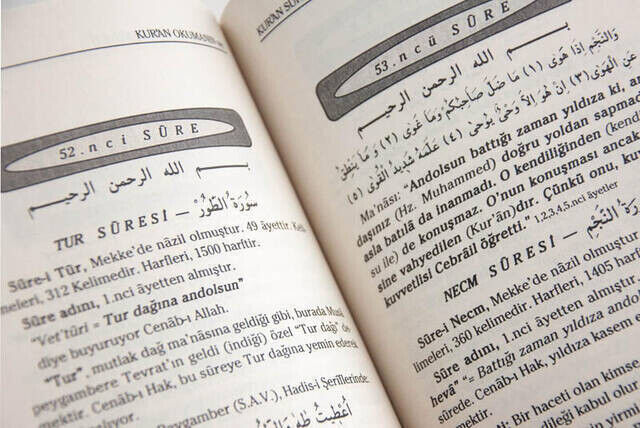 KUR'AN OKUMANIN
52.nci SÛRE
بسم الله الرحمن الرحيم
TUR SÛRESİ – سُورَةُ الطُّورِ
Sûre-i Tûr, Mekke'de nâzil olmuştur. 49 âyettir. Keli-
meleri, 312 Kelimedir. Harfleri, 1500 harftir.
Sûre adını, 1.nci âyetten almıştır.
"Vet'tûri = Tur dağına andolsun"
diye buyuruyor Cenâb-ı Allah.
"Tur". mutlak dağ ma'nâsına geldiği gibi, burada Musâ
peygambere Tevrat'ın geldi (indiği) özel "Tur dağı" de-
mektir. Cenâb-ı Hak, bu sûreye Tur dağına yemin ederek
Peygamber (S.A.V.), Hadis-i Şerîflerinde:
أُعْطِيتُ طٰهَ وَالطَّوَ
KUR'AN
53.ncü SÛRE
بسم الله الرحمن الرحيم
وَالنَّجْمِ إِذَا هَوَى (١) مَا ضَلَّ صَاحِبُكُمْ وَمَا غَوَى (٢) وَمَا يَنْطِقُ
عَنِ الْهَوَى (٣) إِنْ هُوَ إِلَّا وَحْيٌ يُوحَى (٤) عَلَّمَهُ شَدِيدُ الْقُوَى (٥)
Ma'nâsı: "Andolsun battığı zaman yıldıza ki, ar-
daşınız (Hz. Muhammed) doğru yoldan sapma
asla batıla da inanmadı. O kendiliğinden (kend
su ile) de konuşmaz. O'nun konuşması ancak
sine vahyedilen (Kur'ân)dır. Çünkü onu, ku
kuvvetlisi Cebrâil öğretti." 1,2,3,4,5.nci âyetler
NECM SÛRESİ – سُورَةُ النَّجْمِ
Sûre-i Necm, Mekke'de nâzil olmuştur
limeleri, 360 kelimedir. Harfleri, 1405 harf
Sûre adını, 1.nci âyetten almıştır
hevâ" "= Battığı zaman yıldıza ando
sûrede. Cenâb-ı Hak, yıldıza kasem e
Bir haceti olan kimse
dileği kabul olu